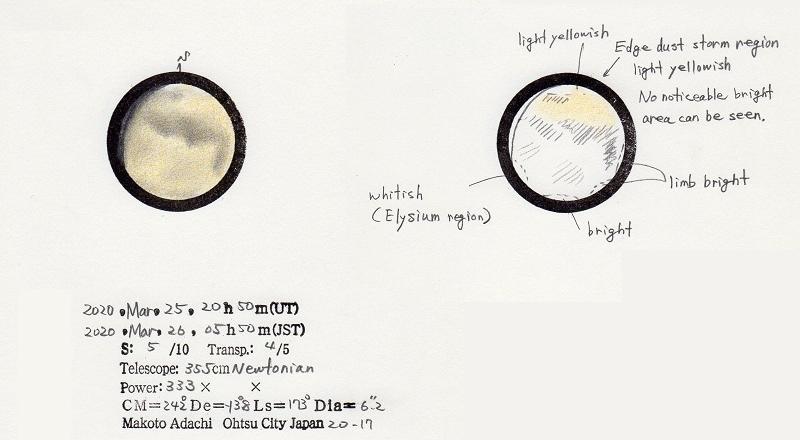 N
light yellowish
Edge dust storm region
light yellowish
No noticeable bright
area can be seen.
limb bright
whitish
(Elysium region)
bright
2020 . Mar. 25, 20h 50m(UT)
2020 . Mar. 26, 05h 50m(JST)
S: 5 /10 Transp.: 4/5
Telescope: 355cm Newtonian
Power: 333 × ×
CM=242° De=-13.8° Ls=173° Dia=6".2
Makoto Adachi Ohtsu City Japan 20-17